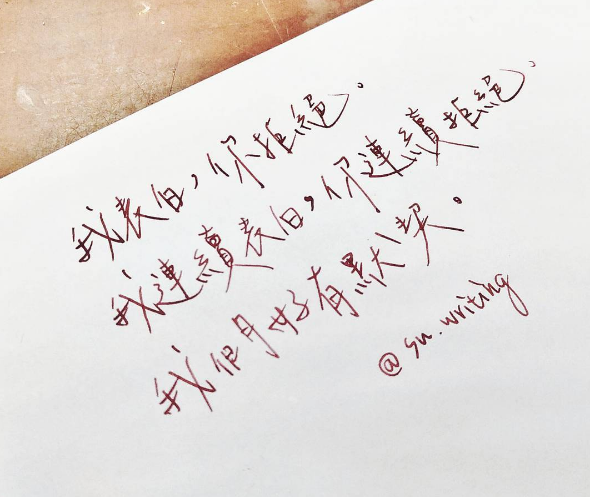 我表白，你拒絕。
我連續表白，你連續拒絕。
我們好有默契。
@su.writing